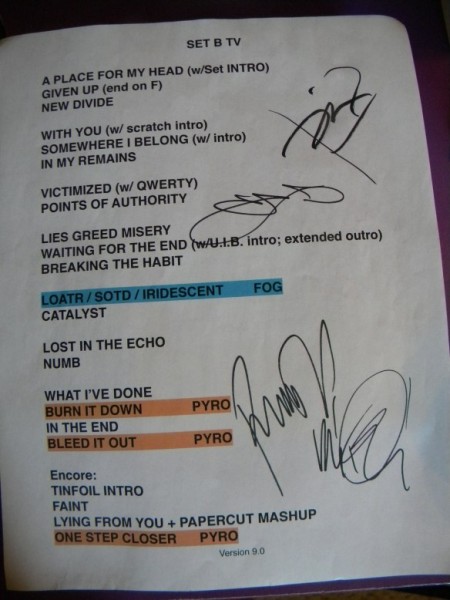 SET B TV
A PLACE FOR MY HEAD (w/Set INTRO)
GIVEN UP (end on F)
NEW DIVIDE
WITH YOU (w/ scratch intro)
SOMEWHERE I BELONG (w/ intro)
IN MY REMAINS
VICTIMIZED (w/ QWERTY)
POINTS OF AUTHORITY
LIES GREED MISERY
WAITING FOR THE END (w/U.I.B. intro; extended outro)
BREAKING THE HABIT
LOATR / SOTD / IRIDESCENT FOG
CATALYST
LOST IN THE ECHO
NUMB
WHAT I'VE DONE
BURN IT DOWN PYRO
IN THE END
BLEED IT OUT PYRO
Encore:
TINFOIL INTRO
FAINT
LYING FROM YOU + PAPERCUT MASHUP
ONE STEP CLOSER PYRO
Version 9.0